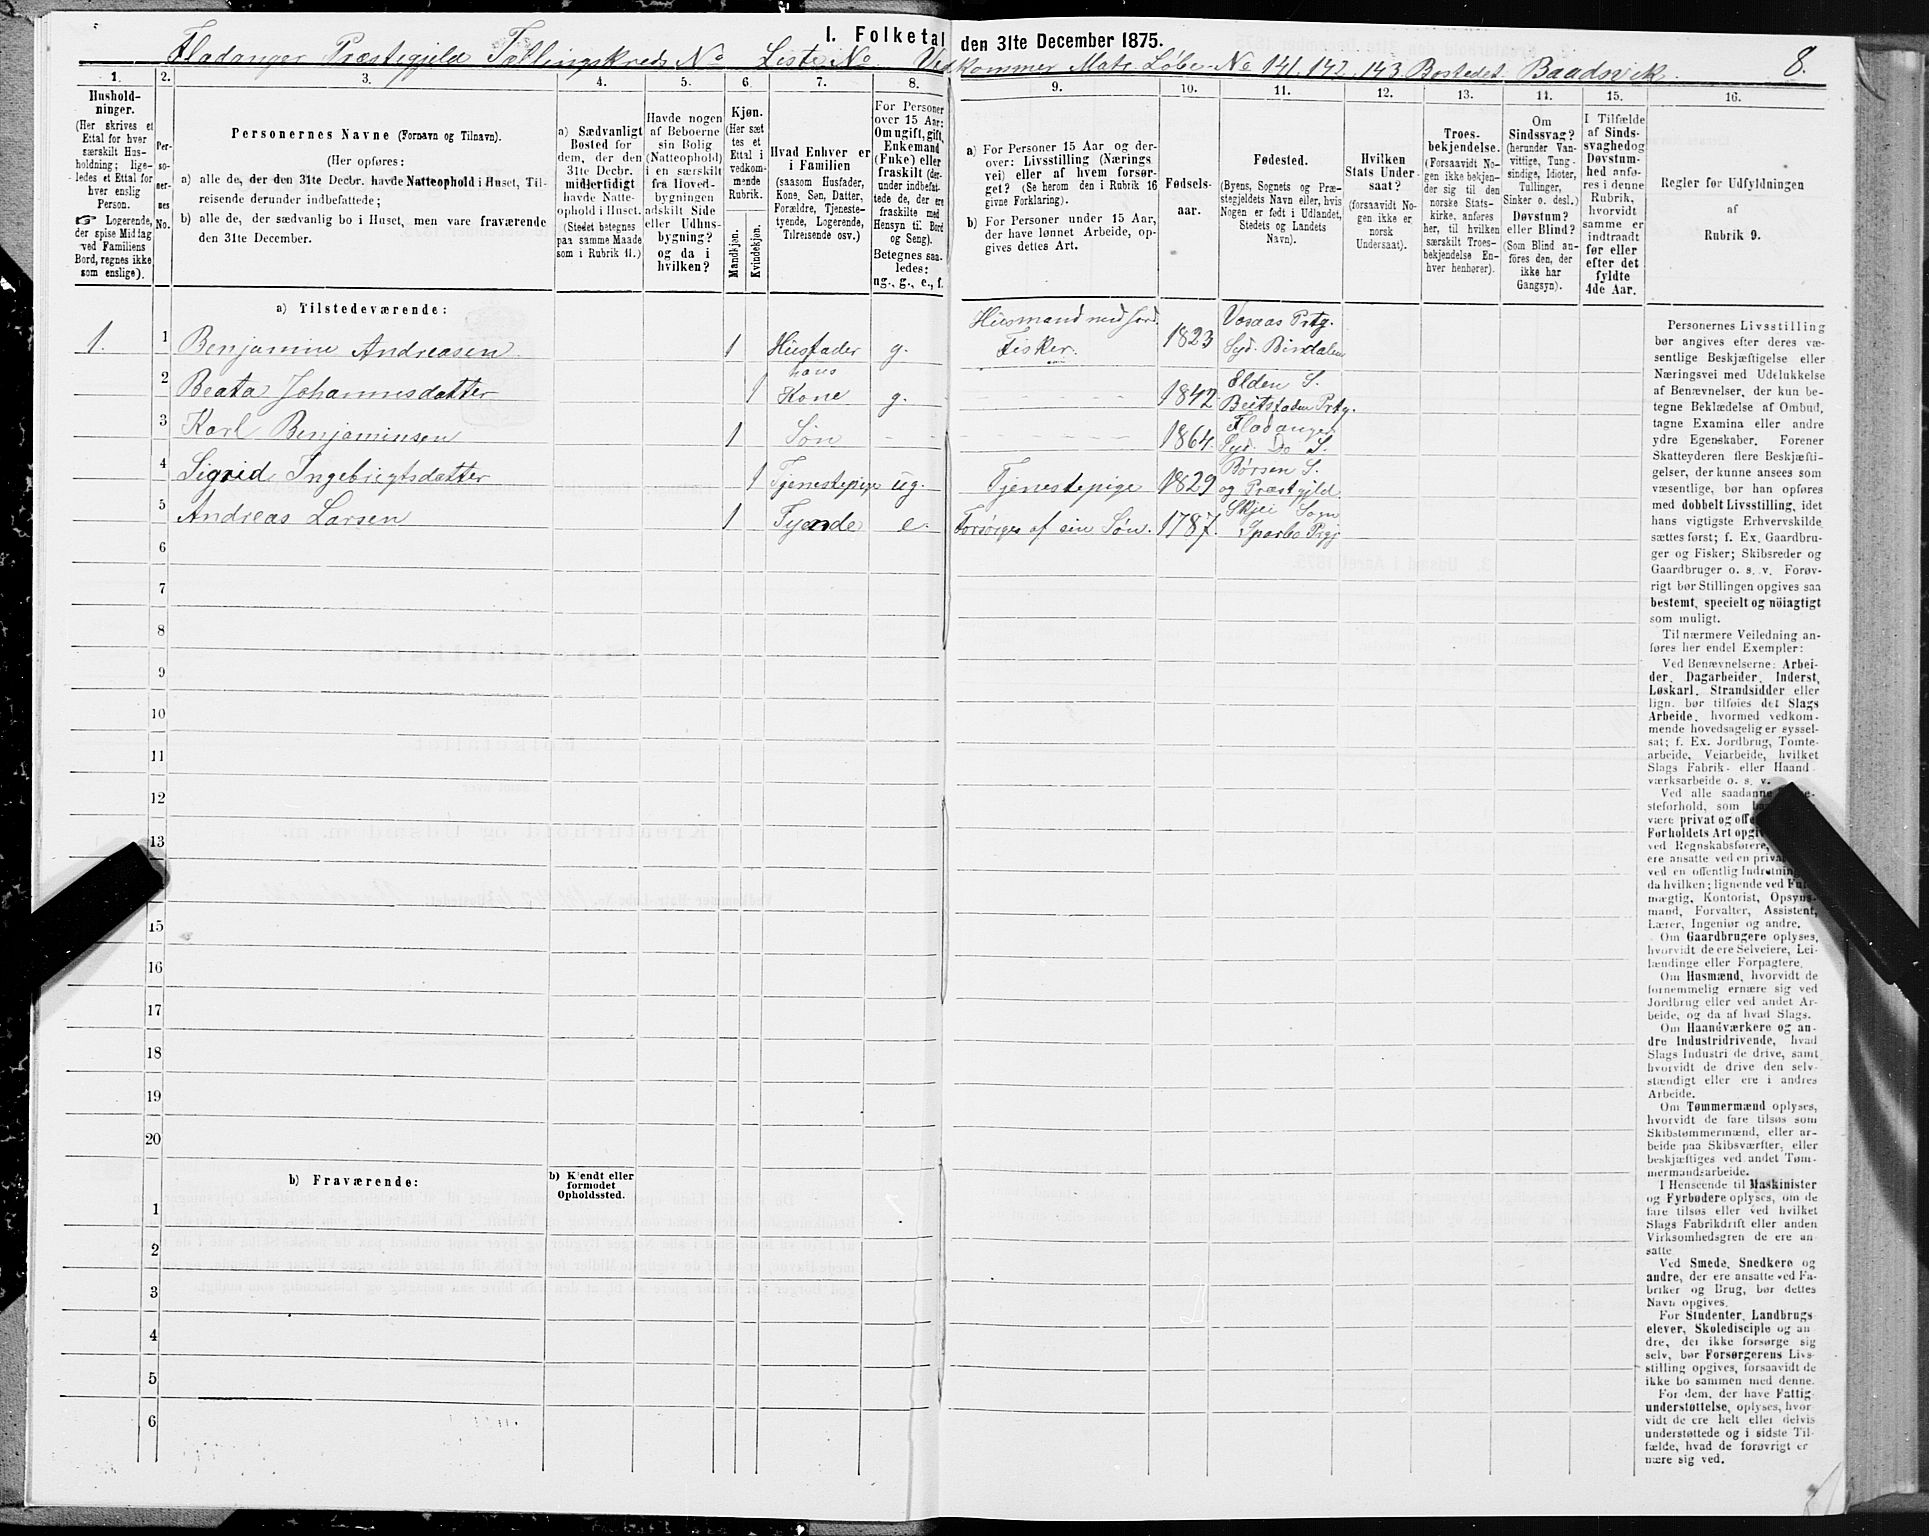 I. Folketal den 31te December 1875.
Fladanger Præstegjeld Tællingskreds No Liste No Vedkommer Matr. Løbe-No 141, 142, 143 Bostedet Baadsvik. 8.
1.
Husholdninger.
(Her skrives et Ettal for hver særskilt Husholdning; ligeledes et Ettal for hver enslig Person.
☞ Logerende, der spise Middag ved Familiens Bord, regnes ikke som enslige).
2.
Personernes No.
3.
Personernes Navne (Fornavn og Tilnavn).
(Her opføres:
a) alle de, der den 31te Decbr. havde Natteophold i Huset, Tilreisende derunder indbefattede;
b) alle de, der sædvanlig bo i Huset, men vare fraværende den 31te December.
4.
a) Sædvanligt Bosted for dem, der den 31te Decbr. midlertidigt havde Natteophold i Huset. (Stedet betegnes paa samme Maade som i Rubrik 11.)
5.
Havde nogen af Beboerne sin Bolig (Natteophold) i en særskilt fra Hovedbygningen adskilt Side eller Udhusbygning? og da i hvilken?
6.
Kjøn.
(Her sættes et Ettal i vedkommende Rubrik.
Mandkjøn.
Kvindekjøn.
7.
Hvad Enhver er i Familien
(saasom Husfader, Kone, Søn, Datter, Forældre, Tjenestetyende, Logerende, Tilreisende osv.)
8.
For Personer over 15 Aar: Om ugift, gift, Enkemand (Enke) eller fraskilt (derunder indbefattede de, der ere fraskilte med Hensyn til Bord og Seng).
Betegnes saaledes: ug., g., e., f.
9.
a) For Personer 15 Aar og derover: Livsstilling (Næringsvei) eller af hvem forsørget? (Se herom den i Rubrik 16 givne Forklaring).
b) For Personer under 15 Aar, der have lønnet Arbeide, opgives dettes Art.
10.
Fødselsaar.
11.
Fødested.
(Byens, Sognets og Præstegjeldets Navn eller, hvis Nogen er født i Udlandet, Stedets og Landets Navn).
12.
Hvilken Stats Undersaat?
(forsaavidt Nogen ikke er norsk Undersaat).
13.
Troesbekjendelse.
(Forsaavidt Nogen ikke bekjender sig til den norske Statskirke, anføres her, til hvilken særskilt Troesbekjendelse Enhver henhører).
14.
Om Sindssvag?
(herunder Vanvittige, Tungsindige, Idioter, Tullinger, Sinker o. desl.)
Døvstum? eller Blind?
(Som Blind anføres den, der ikke har Gangsyn).
15.
I Tilfælde af Sindssvaghed og Døvstumhed anføres i denne Rubrik, hvorvidt samme er indtraadt før eller efter det fyldte 4de Aar.
16.
Regler for Udfyldningen af Rubrik 9.
a) Tilstedeværende:
1. 1 Benjamin Andreasen 1 Husfader g. Husmand med Jord. Fisker. 1823
Sgd. Bindalen
2 Beata Johannesdatter 1 hans Kone g. 1842 Elden S. Beitstaden Prtg.
3 Karl Benjaminsen 1 Søn 1864. Fladanger
Do S.
4 Sigrid Ingebrigtsdatter 1 Tjenestepige ug. Tjenestepige 1829 Børsen S. og Præstgjld.
5 Andreas Larsen 1 e. Forsørges af sin Søn. 1787. Skjei Sogn Sparbo Prgj
6
7
8
9
10
11
12
13
15
16
17
18
19
20
b) Fraværende:
b) Kjendt eller formodet Opholdssted.
1
2
3
4
5
6
Personernes Livsstilling
bør angives efter deres væ-
sentlige Beskjæftigelse eller
Næringsvei med Udelukkelse
af Benævnelser, der kun be-
tegne Beklædelse af Ombud,
tagne Examina eller andre
ydre Egenskaber. Forener
Skatteyderen flere Beskjæfti-
gelser, der kunne ansees som
væsentlige, bør han opføres
med dobbelt Livsstilling, idet
hans vigtigste Erhvervskilde
sættes først; f. Ex. Gaardbru-
ger og Fisker; Skibsreder og
Gaardbruger o. s. v. Forøv-
rigt bør Stillingen opgives saa
bestemt, specielt og nöiagtigt
som muligt.
Til nærmere Veiledning an-
føres her endel Exempler:
Ved Benævnelserne: Arbei-
der, Dagarbeider, Inderst,
Løskarl, Strandsidder eller
lign. bør tilføies det Slags
Arbeide, hvormed vedkom-
mende hovedsagelig er syssel-
sat; f. Ex. Jordbrug, Tomte-
arbeide, Veiarbeide, hvilket
Slags Fabrik- eller Haand-
værksarbeide o. s. v.
Ved alle saadanne
steforhold, som
være privat og
Forholdets Art
ved Regnskabsførere,
ere ansatte ved en
ved en offentlig Indretning,
da hvilken; lignende ved Fuld-
mægtig, Kontorist, Opsyns-
mand, Forvalter, Assistent,
Lærer, Ingeniør og andre.
Om Gaardbrugere oplyses,
hvorvidt de ere Selveiere, Lei-
lændinge eller Forpagtere.
Om Husmænd, hvorvidt de
fornemmelig ernære sig ved
Jordbrug eller ved andet Ar-
beide, og da af hvad Slags.
Om Haandværkere og an-
dre Industridrivende, hvad
Slags Industri de drive, samt
hvorvidt de drive den selv-
stændigt eller ere i andres
Arbeide.
Om Tømmermænd oplyses,
hvorvidt de fare tilsøs som
Skibstømmermænd, eller ar-
beide paa Skibsværfter, eller
beskjæftiges ved andet Tøm-
mermandsarbeide.
I Henseende til Maskinister
og Fyrbødere oplyses, om de
fare tilsøs eller ved hvilket
Slags Fabrikdrift eller anden
Virksomhedsgren de ere an-
satte.
Ved Smede, Snedkere og
andre, der ere ansatte ved Fa-
briker og Brug, bør dettes
Navn opgives.
For Studenter, Landbrugs-
elever, Skoledisciple og an-
dre, der ikke forsørge sig
selv, bør Forsørgerens Livs-
stilling opgives, forsaavidt de
ikke bo sammen med denne.
For dem, der have Fattig-
understøttelse, oplyses, hvor-
vidt de ere helt eller delvis
understøttede og i sidste Til-
fælde, hvad de forøvrigt er-
nære sig ved.